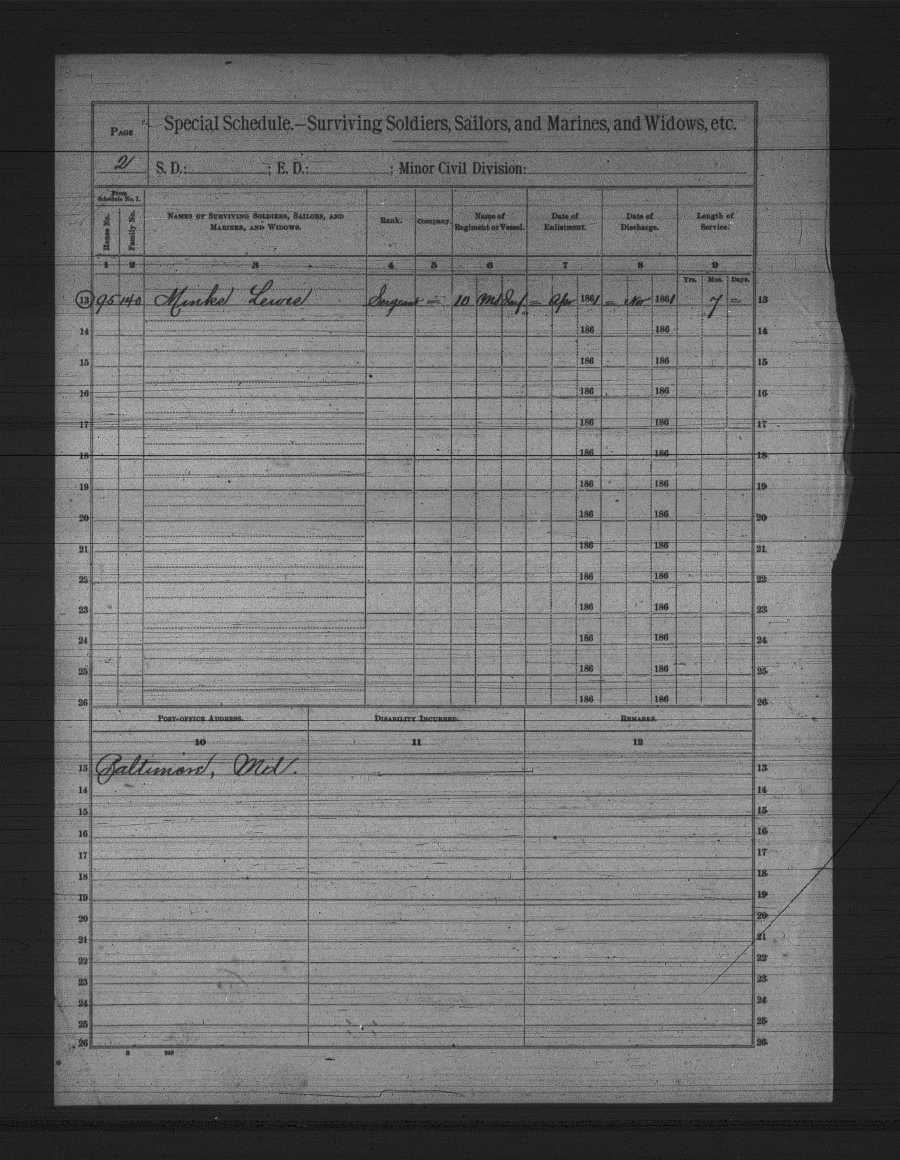 Page
Special Schedule.—Surviving Soldiers, Sailors, and Marines, and Widows, etc.
2
S. D.: ; E. D.: ; Minor Civil Division:
From Schedule No. 1.
House No. Family No. Names of Surviving Soldiers, Sailors, and Marines, and Widows. Rank. Company. Name of Regiment or Vessel. Date of Enlistment. Date of Discharge. Length of Service.
1 2 3 4 5 6 7 8 9
Yrs. Mos. Days.
13 95 140 Minks Lewis Sergeant = 10 Md Inf. = Apr 1861 = Nov 1861 7 = 13
14 186 186 14
15 186 186 15
16 186 186 16
17 186 186 17
18 186 186 18
19 186 186 19
20 186 186 20
21 186 186 21
22 186 186 22
23 186 186 23
24 186 186 24
25 186 186 25
26 186 186 26
Post-office Address. Disability Incurred. Remarks.
10 11 12
13 Baltimore, Md. 13
14 14
15 15
16 16
17 17
18 18
19 19
20 20
21 21
22 22
23 23
24 24
25 25
26 26